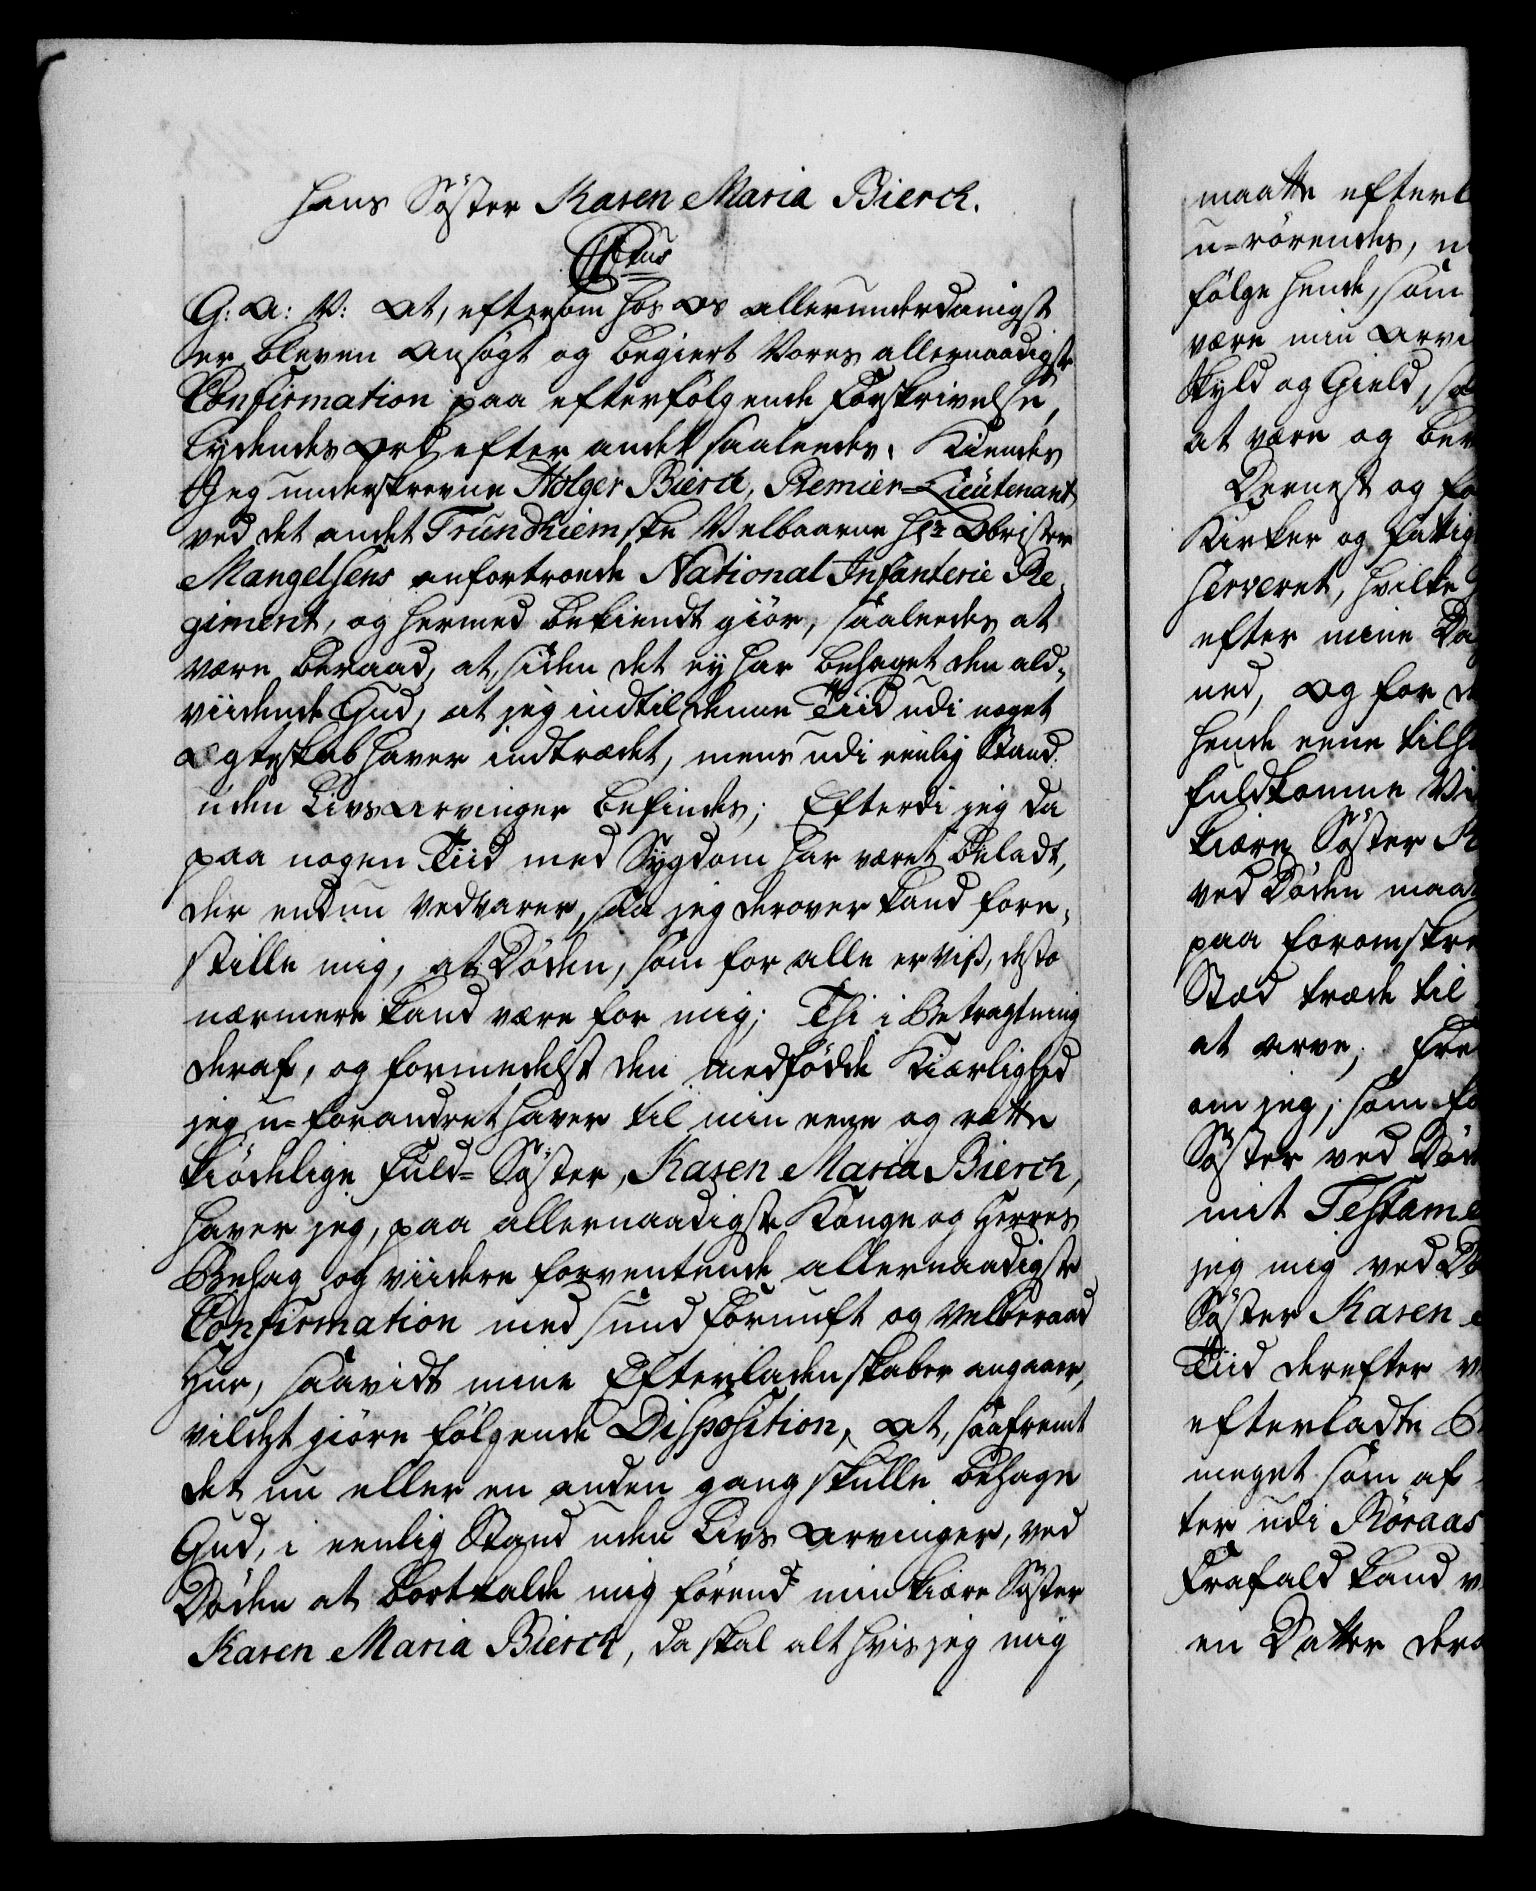 hans Søster Karen Maria Bierch.
G: A: V: At, eftersom hos Os allerunderdanigst
er bleven ansøgt og begiert Vores allernaadigste
Confirmation paa efterfølgende Forskrivelse,
lydendes Ord efter andet saaledes: Kiendes
Jeg underskrevne Holger Bierch, Premier-Lieutenant
ved det andet Trundhiemske Velbaarne Hr Obrister
Mangelsens anfortroede National Infanterie Re-
giment, og hermed bekiendt giør, saaledes at
være beraad, at, siden det ey har behaget den ald-
viidende Gud, at jeg indtil denne Tiid udi noget
Ægteskab haver indtrædet, mens udi eenlig Stand
uden Livs Arvinger befindes; Efterdi jeg da
paa nogen Tiid med Sygdom har været beladt,
der endnu vedvarer, saa jeg derover kand fore-
stille mig, at Døden, som for alle er viß, desto
nærmere kand være for mig; Thi i Betragtning
deraf, og formedelst den medfødde Kiærlighed
jeg u-forandret haver til min eene og rette
kiødelige Fuld-Søster, Karen Maria Bierch,
haver jeg, paa allernaadigste Konge og Herres
Behag og viidere forventende allernaadigste
Confirmation med sund Fornuft og velberaad
Hue, saavidt mine Efterladenskaber angaaer,
vildet giøre følgende Disposition, At, saafremt
det nu eller en anden gang skulle behage
Gud, i eenlig Stand uden Livs Arvinger, ved
Døden at bortkalde mig førend min kiære Søster
Karen Maria Bierch, da skal alt hvis jeg mig
maatte
u-rørendes,
følge hende, som
være min
Skyld og Gield,
at være og
Dernest og
Kirker og
serveret, hvilke
efter mine
ned, og for
hende eene
fuldkomne
kiære Søster
ved Døden
paa
Sted træde til
at arve;
om jeg, som
Søster ved
mit
jeg mig ved
Søster Karen
Tiid derefter
efterladte
meget som af
ter udi Røraas
Frafald kand
en Datter